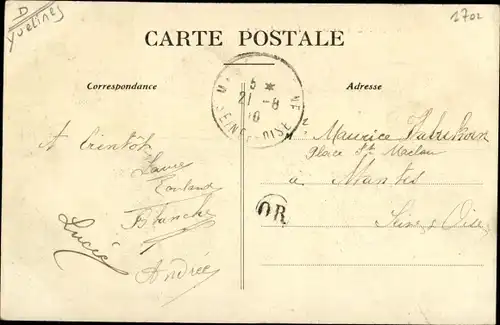 D
Yvelines
1702
CARTE POSTALE
Correspondance
Adresse
5 *
21 - 8
10
SEINE-ET-OISE
A bientôt
Blanche
Lucie
Andrée
Maurice
Place St Maclou
à Mantes
Seine & Oise
OR